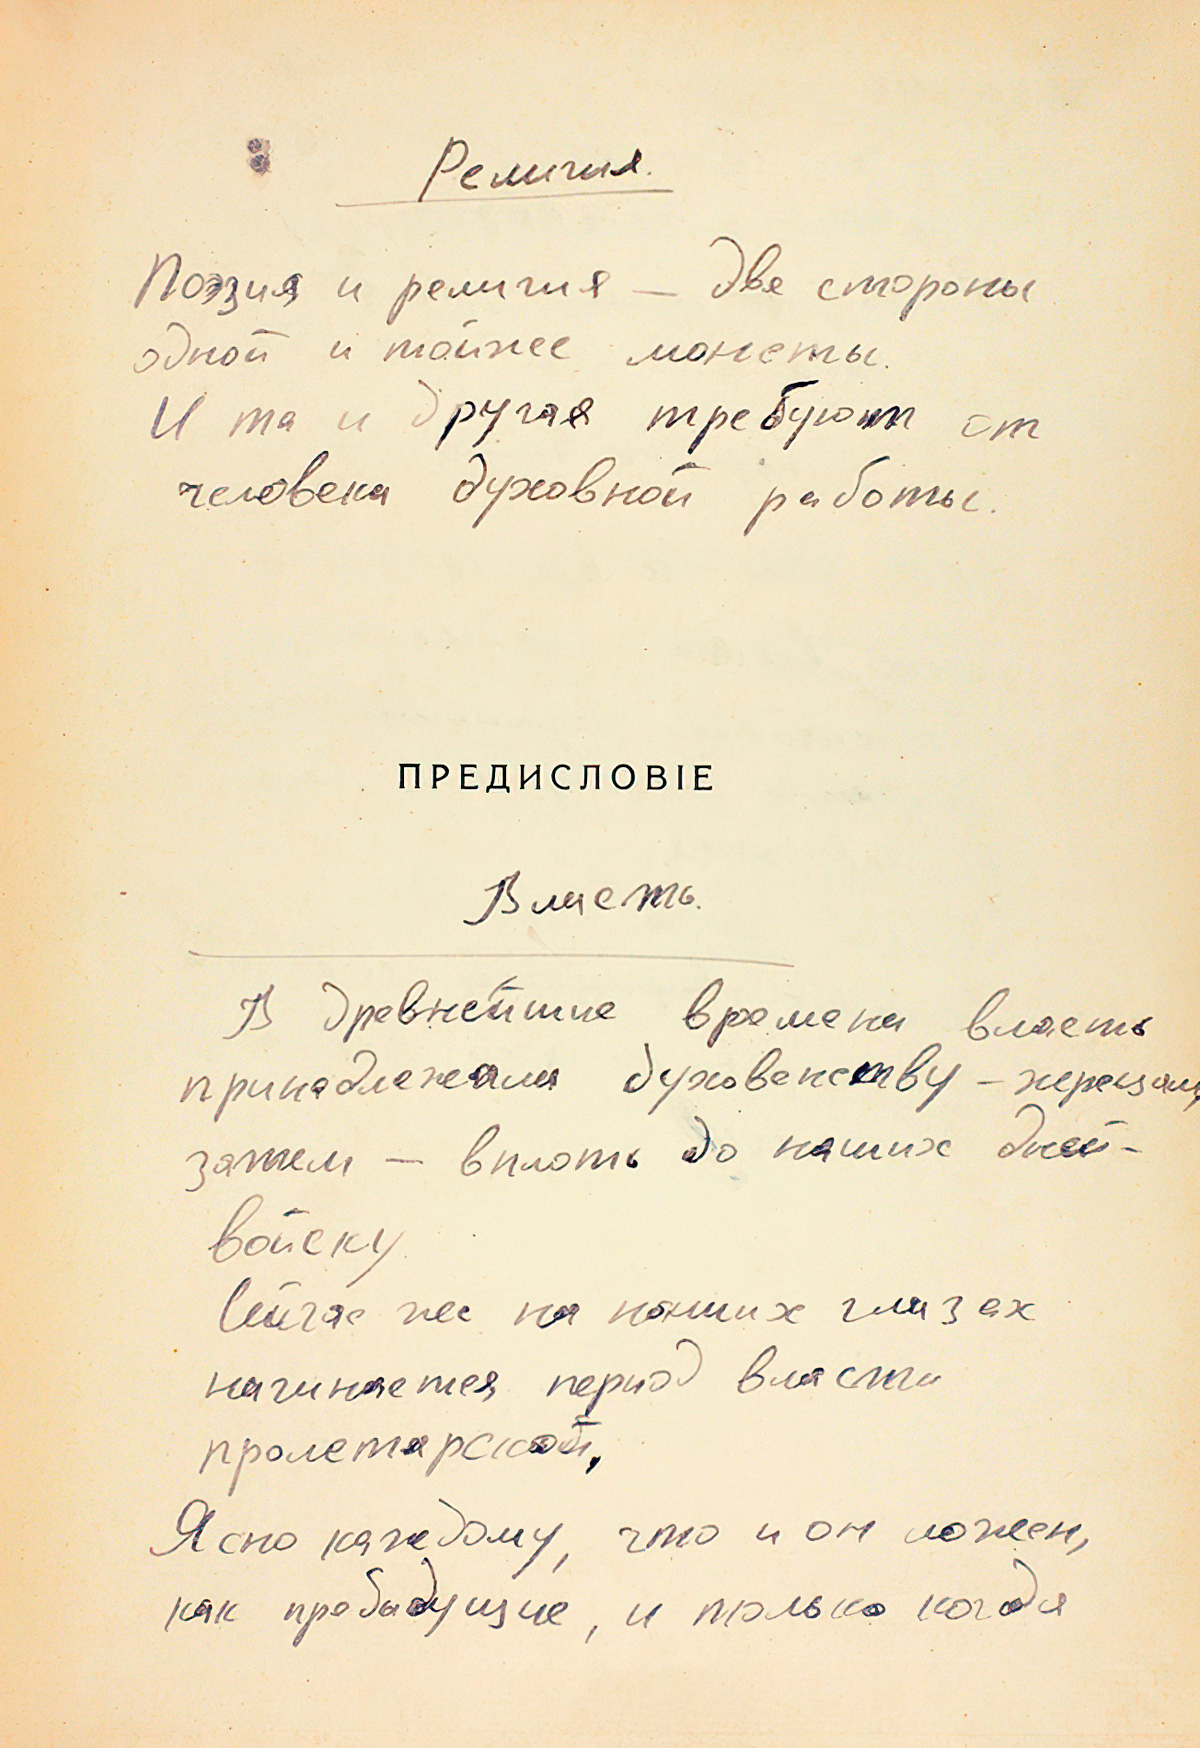 Религия.
Поэзия и религия — две стороны
одной и тойже монеты.
И та и другая требуют от
человека духовной работы.
ПРЕДИСЛОВІЕ
Власть.
В древнейшие времена власть
принадлежала духовенству – жрецам,
затем — вплоть до наших дней –
войску.
Сейчас же на наших глазах
начинается период власти
пролетарской,
Ясно каждому, что и он ложен,
как предыдущие, и только когда